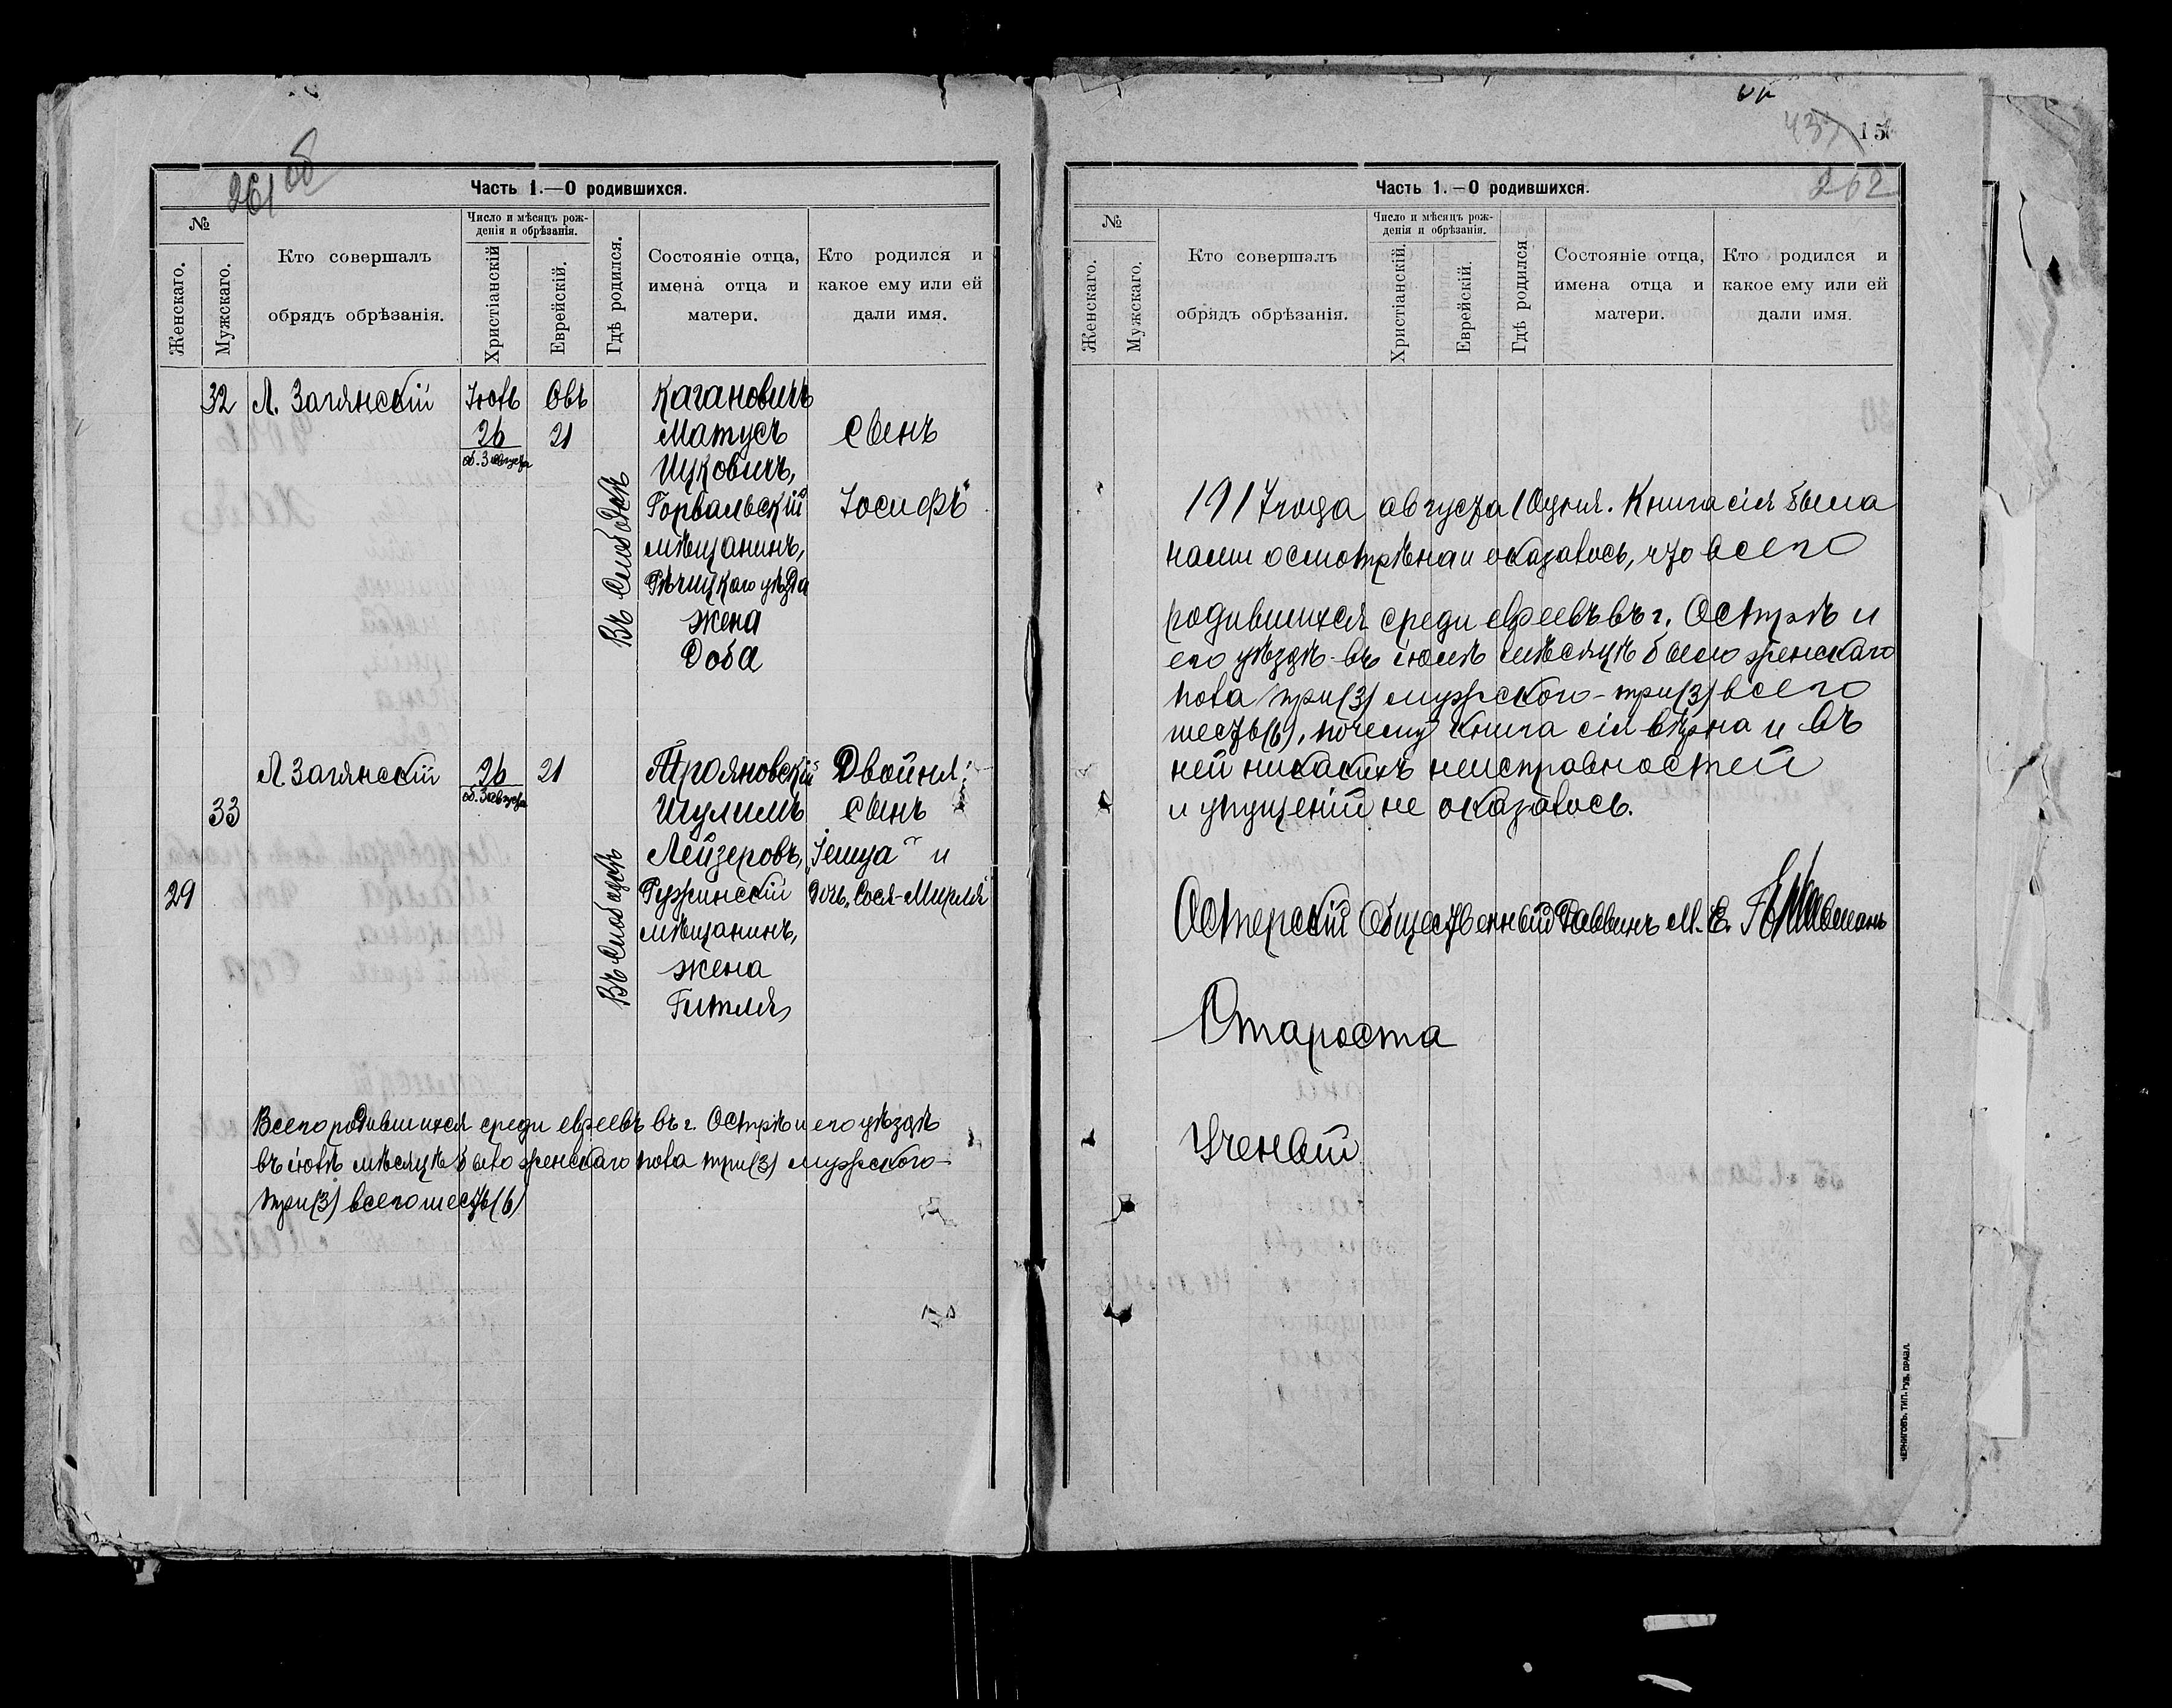 261 об
Часть 1.—О родившихся.
№
Женскаго.
Мужскаго.
Кто совершалъ
обрядъ обрѣзанія.
Число и мѣсяцъ рож-
денія и обрѣзанія.
Христіанскій
Еврейскій.
Гдѣ родился.
Состояніе отца,
имена отца и
матери.
Кто родился и
какое ему или ей
дали имя.
32 Л. Загянскій Іюль Овъ Кагановичъ
26 21 Матусъ сынъ
об. 3 августа
Ицковичъ,
Горвальскій „Іосифъ“
мѣщанинъ,
Рѣчицкого уѣзда
жена
Доба
Въ Слободкѣ
Л. Загянскій 26 21 Трояновскій Двойня:
об. 3 августа
33 Шулимъ сынъ
Лейзеровъ, „Іешуа“ и
29 Ружинскій дочь „Сося-Мирля“
мѣщанинъ,
жена
Гитля
Въ Слободкѣ
Всего родившихся среди евреевъ въ г. Острѣ и его уѣздѣ
въ іюлѣ мѣсяцѣ было женскаго пола три (3) мужского-
три (3) всего шесть (6)
437
15
262
Часть 1.—О родившихся.
№
Женскаго.
Мужскаго.
Кто совершалъ
обрядъ обрѣзанія.
Число и мѣсяцъ рож-
денія и обрѣзанія.
Христіанскій.
Еврейскій.
Гдѣ родился
Состояніе отца,
имена отца и
матери.
Кто родился и
какое ему или ей
дали имя.
1917 года августа 10 дня. Книга сія была
нами осмотрѣна и оказалось, что всего
родившихся среди евреевъ въ г. Острѣ и
его уѣздѣ въ іюлѣ мѣсяцѣ было женскаго
пола три (3) мужского - три (3) всего
шесть (6), почему книга сія вѣрна и въ
ней никакихъ неисправностей
и упущеній не оказалось.
Остерскій Общественный Раввинъ М. Е.
Староста
Ученый
ЧЕРНИГОВЪ. ТИП. ГУБ. ПРАВЛ.